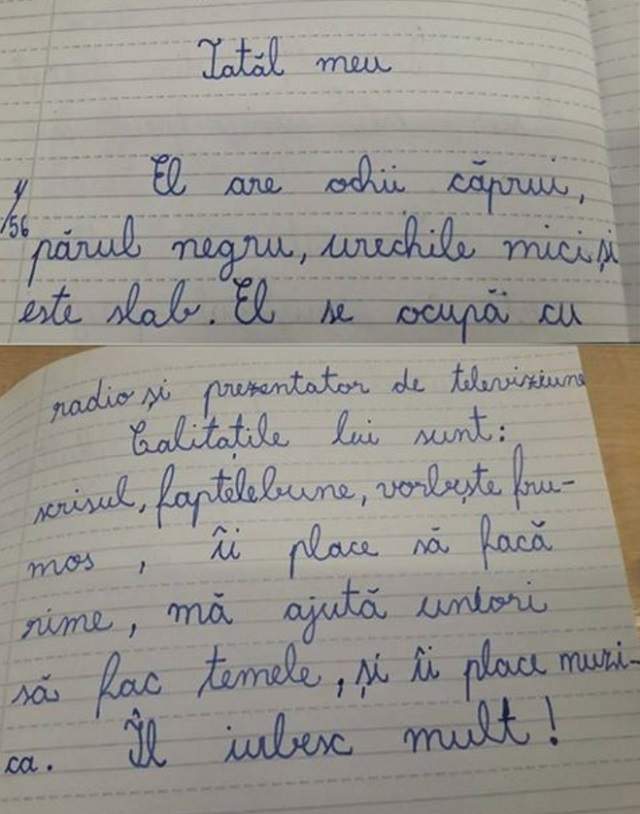 Tatăl meu
El are ochii căprui,
părul negru, urechile mici și
este slab. El se ocupă cu
radio și prezentator de televiziune
Calitațile lui sunt:
scrisul, faptelebune, vorbește fru-
mos, îi place să facă
rime, mă ajută uneori
să fac temele, și îi place muzi-
ca. Îl iubesc mult!